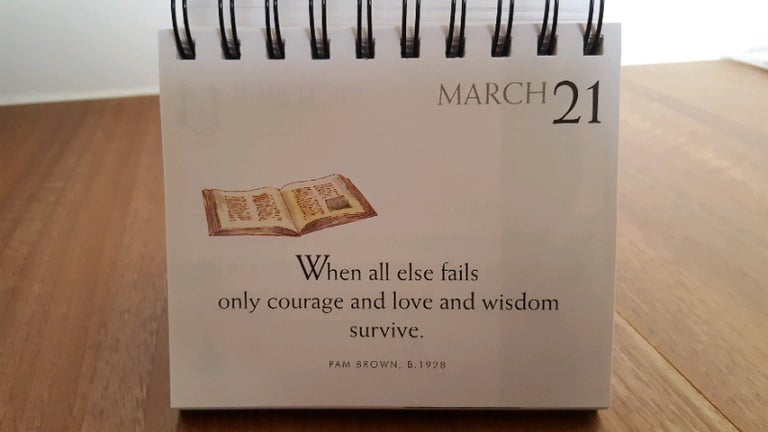 MARCH 21
When all else fails
only courage and love and wisdom
survive.
PAM BROWN, B.1928